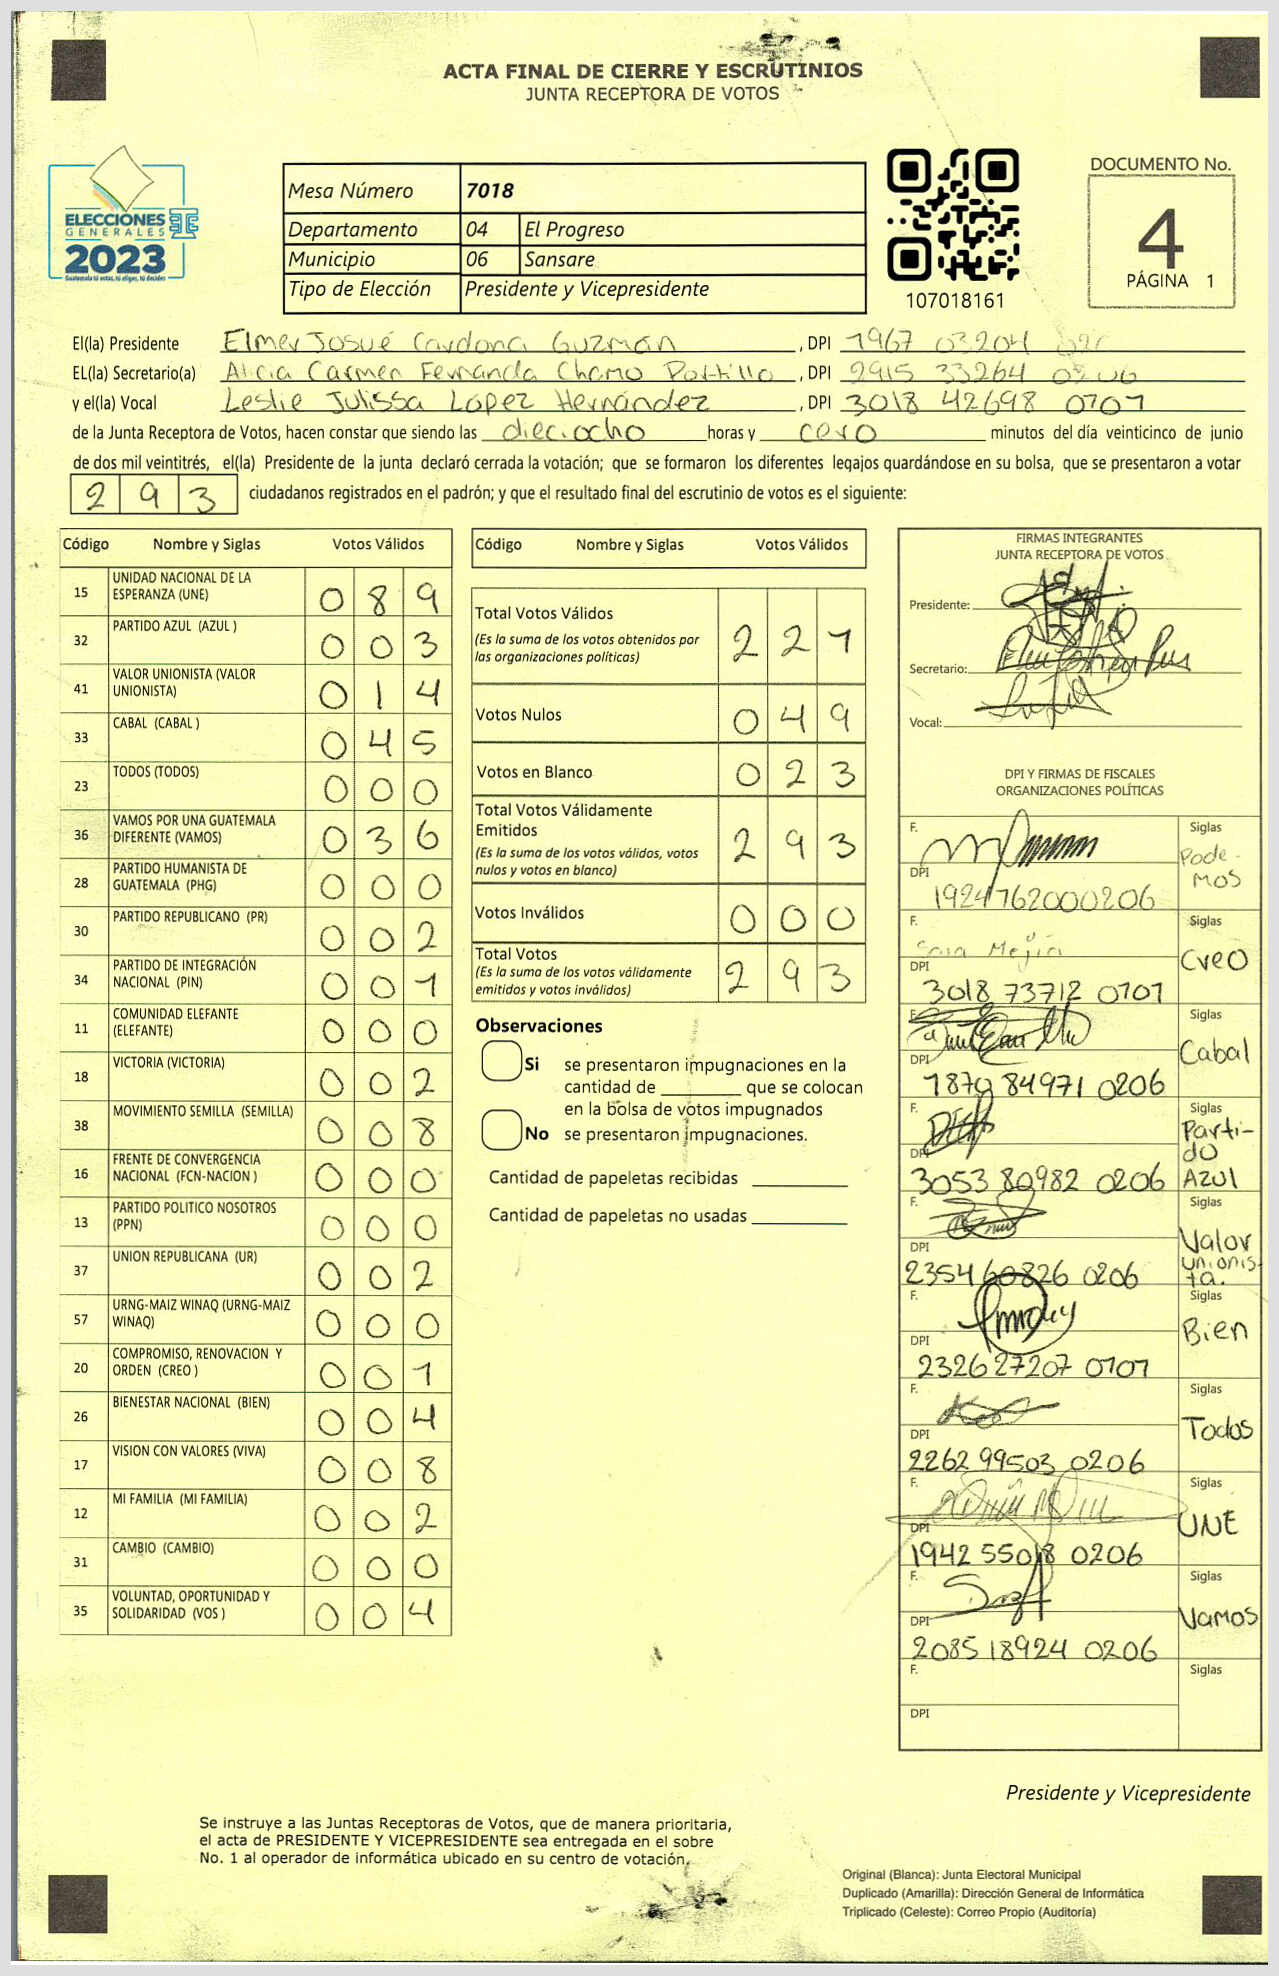 ACTA FINAL DE CIERRE Y ESCRUTINIOS
JUNTA RECEPTORA DE VOTOS
ELECCIONES
GENERALES
2023
Guatemala tú votas, tú eliges, tú decides
Mesa Número 7018
Departamento 04 El Progreso
Municipio 06 Sansare
Tipo de Elección Presidente y Vicepresidente
107018161
DOCUMENTO No.
4
PÁGINA 1
El(la) Presidente Elmer Josué Cardona Guzmán , DPI 1967 03204
EL(la) Secretario(a) Alicia Carmen Fernanda Chamo Portillo , DPI 2915 33264 0206
y el(la) Vocal Leslie Julissa López Hernández , DPI 3018 42698 0701
de la Junta Receptora de Votos, hacen constar que siendo las dieciocho horas y cero minutos del día veinticinco de junio
de dos mil veintitrés, el(la) Presidente de la junta declaró cerrada la votación; que se formaron los diferentes legajos guardándose en su bolsa, que se presentaron a votar
293 ciudadanos registrados en el padrón; y que el resultado final del escrutinio de votos es el siguiente:
Código Nombre y Siglas Votos Válidos
15 UNIDAD NACIONAL DE LA ESPERANZA (UNE) 0 8 9
32 PARTIDO AZUL (AZUL ) 0 0 3
41 VALOR UNIONISTA (VALOR UNIONISTA) 0 1 4
33 CABAL (CABAL ) 0 4 5
23 TODOS (TODOS) 0 0 0
36 VAMOS POR UNA GUATEMALA DIFERENTE (VAMOS) 0 3 6
28 PARTIDO HUMANISTA DE GUATEMALA (PHG) 0 0 0
30 PARTIDO REPUBLICANO (PR) 0 0 2
34 PARTIDO DE INTEGRACIÓN NACIONAL (PIN) 0 0 1
11 COMUNIDAD ELEFANTE (ELEFANTE) 0 0 0
18 VICTORIA (VICTORIA) 0 0 2
38 MOVIMIENTO SEMILLA (SEMILLA) 0 0 8
16 FRENTE DE CONVERGENCIA NACIONAL (FCN-NACION ) 0 0 0
13 PARTIDO POLITICO NOSOTROS (PPN) 0 0 0
37 UNION REPUBLICANA (UR) 0 0 2
57 URNG-MAIZ WINAQ (URNG-MAIZ WINAQ) 0 0 0
20 COMPROMISO, RENOVACION Y ORDEN (CREO ) 0 0 1
26 BIENESTAR NACIONAL (BIEN) 0 0 4
17 VISION CON VALORES (VIVA) 0 0 8
12 MI FAMILIA (MI FAMILIA) 0 0 2
31 CAMBIO (CAMBIO) 0 0 0
35 VOLUNTAD, OPORTUNIDAD Y SOLIDARIDAD (VOS ) 0 0 4
Código Nombre y Siglas Votos Válidos
Total Votos Válidos 2 2 1
(Es la suma de los votos obtenidos por
las organizaciones políticas)
Votos Nulos 0 4 9
Votos en Blanco 0 2 3
Total Votos Válidamente
Emitidos 2 9 3
(Es la suma de los votos válidos, votos
nulos y votos en blanco)
Votos Inválidos 0 0 0
Total Votos 2 9 3
(Es la suma de los votos válidamente
emitidos y votos inválidos)
Observaciones
Si se presentaron impugnaciones en la
cantidad de ________ que se colocan
en la bolsa de votos impugnados
No se presentaron impugnaciones.
Cantidad de papeletas recibidas
Cantidad de papeletas no usadas
FIRMAS INTEGRANTES
JUNTA RECEPTORA DE VOTOS
Presidente:
Secretario:
Vocal:
DPI Y FIRMAS DE FISCALES
ORGANIZACIONES POLÍTICAS
F. Siglas Podemos
DPI 1924762000206
F. Mejía Siglas Creo
DPI 3018 73712 0701
F. Siglas Cabal
DPI 1879 84971 0206
F. Siglas Partido Azul
DPI 3053 80982 0206
F. Siglas Valor unionista.
DPI 2354 60826 0206
F. Siglas Bien
DPI 2326 27207 0701
F. Siglas Todos
DPI 2262 99503 0206
F. Siglas UNE
DPI 1942 55018 0206
F. Siglas Vamos
DPI 2085 18924 0206
F. Siglas
DPI
Presidente y Vicepresidente
Se instruye a las Juntas Receptoras de Votos, que de manera prioritaria,
el acta de PRESIDENTE Y VICEPRESIDENTE sea entregada en el sobre
No. 1 al operador de informática ubicado en su centro de votación.
Original (Blanca): Junta Electoral Municipal
Duplicado (Amarilla): Dirección General de Informática
Triplicado (Celeste): Correo Propio (Auditoría)